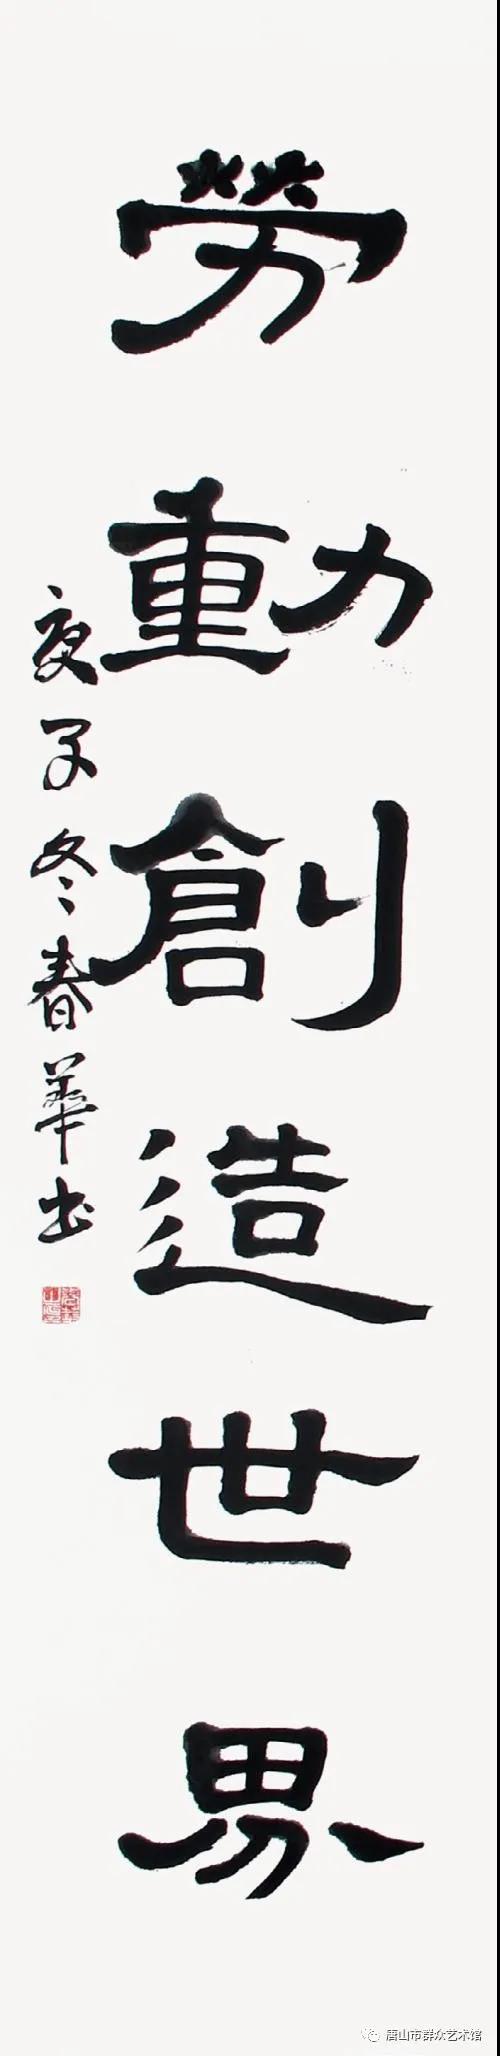 勞動創造世界
庚子冬春華书
唐山市群众艺术馆